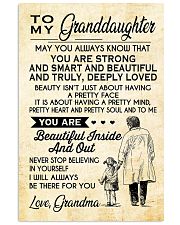 TO
MY Granddaughter
MAY YOU ALWAYS KNOW THAT
YOU ARE STRONG
AND SMART AND BEAUTIFUL
AND TRULY, DEEPLY LOVED
BEAUTY ISN'T JUST ABOUT HAVING
A PRETTY FACE
IT IS ABOUT HAVING A PRETTY MIND,
PRETTY HEART AND PRETTY SOUL AND TO ME
YOU ARE
Beautiful Inside
And Out
NEVER STOP BELIEVING
IN YOURSELF
I WILL ALWAYS
BE THERE FOR YOU
Love, Grandma